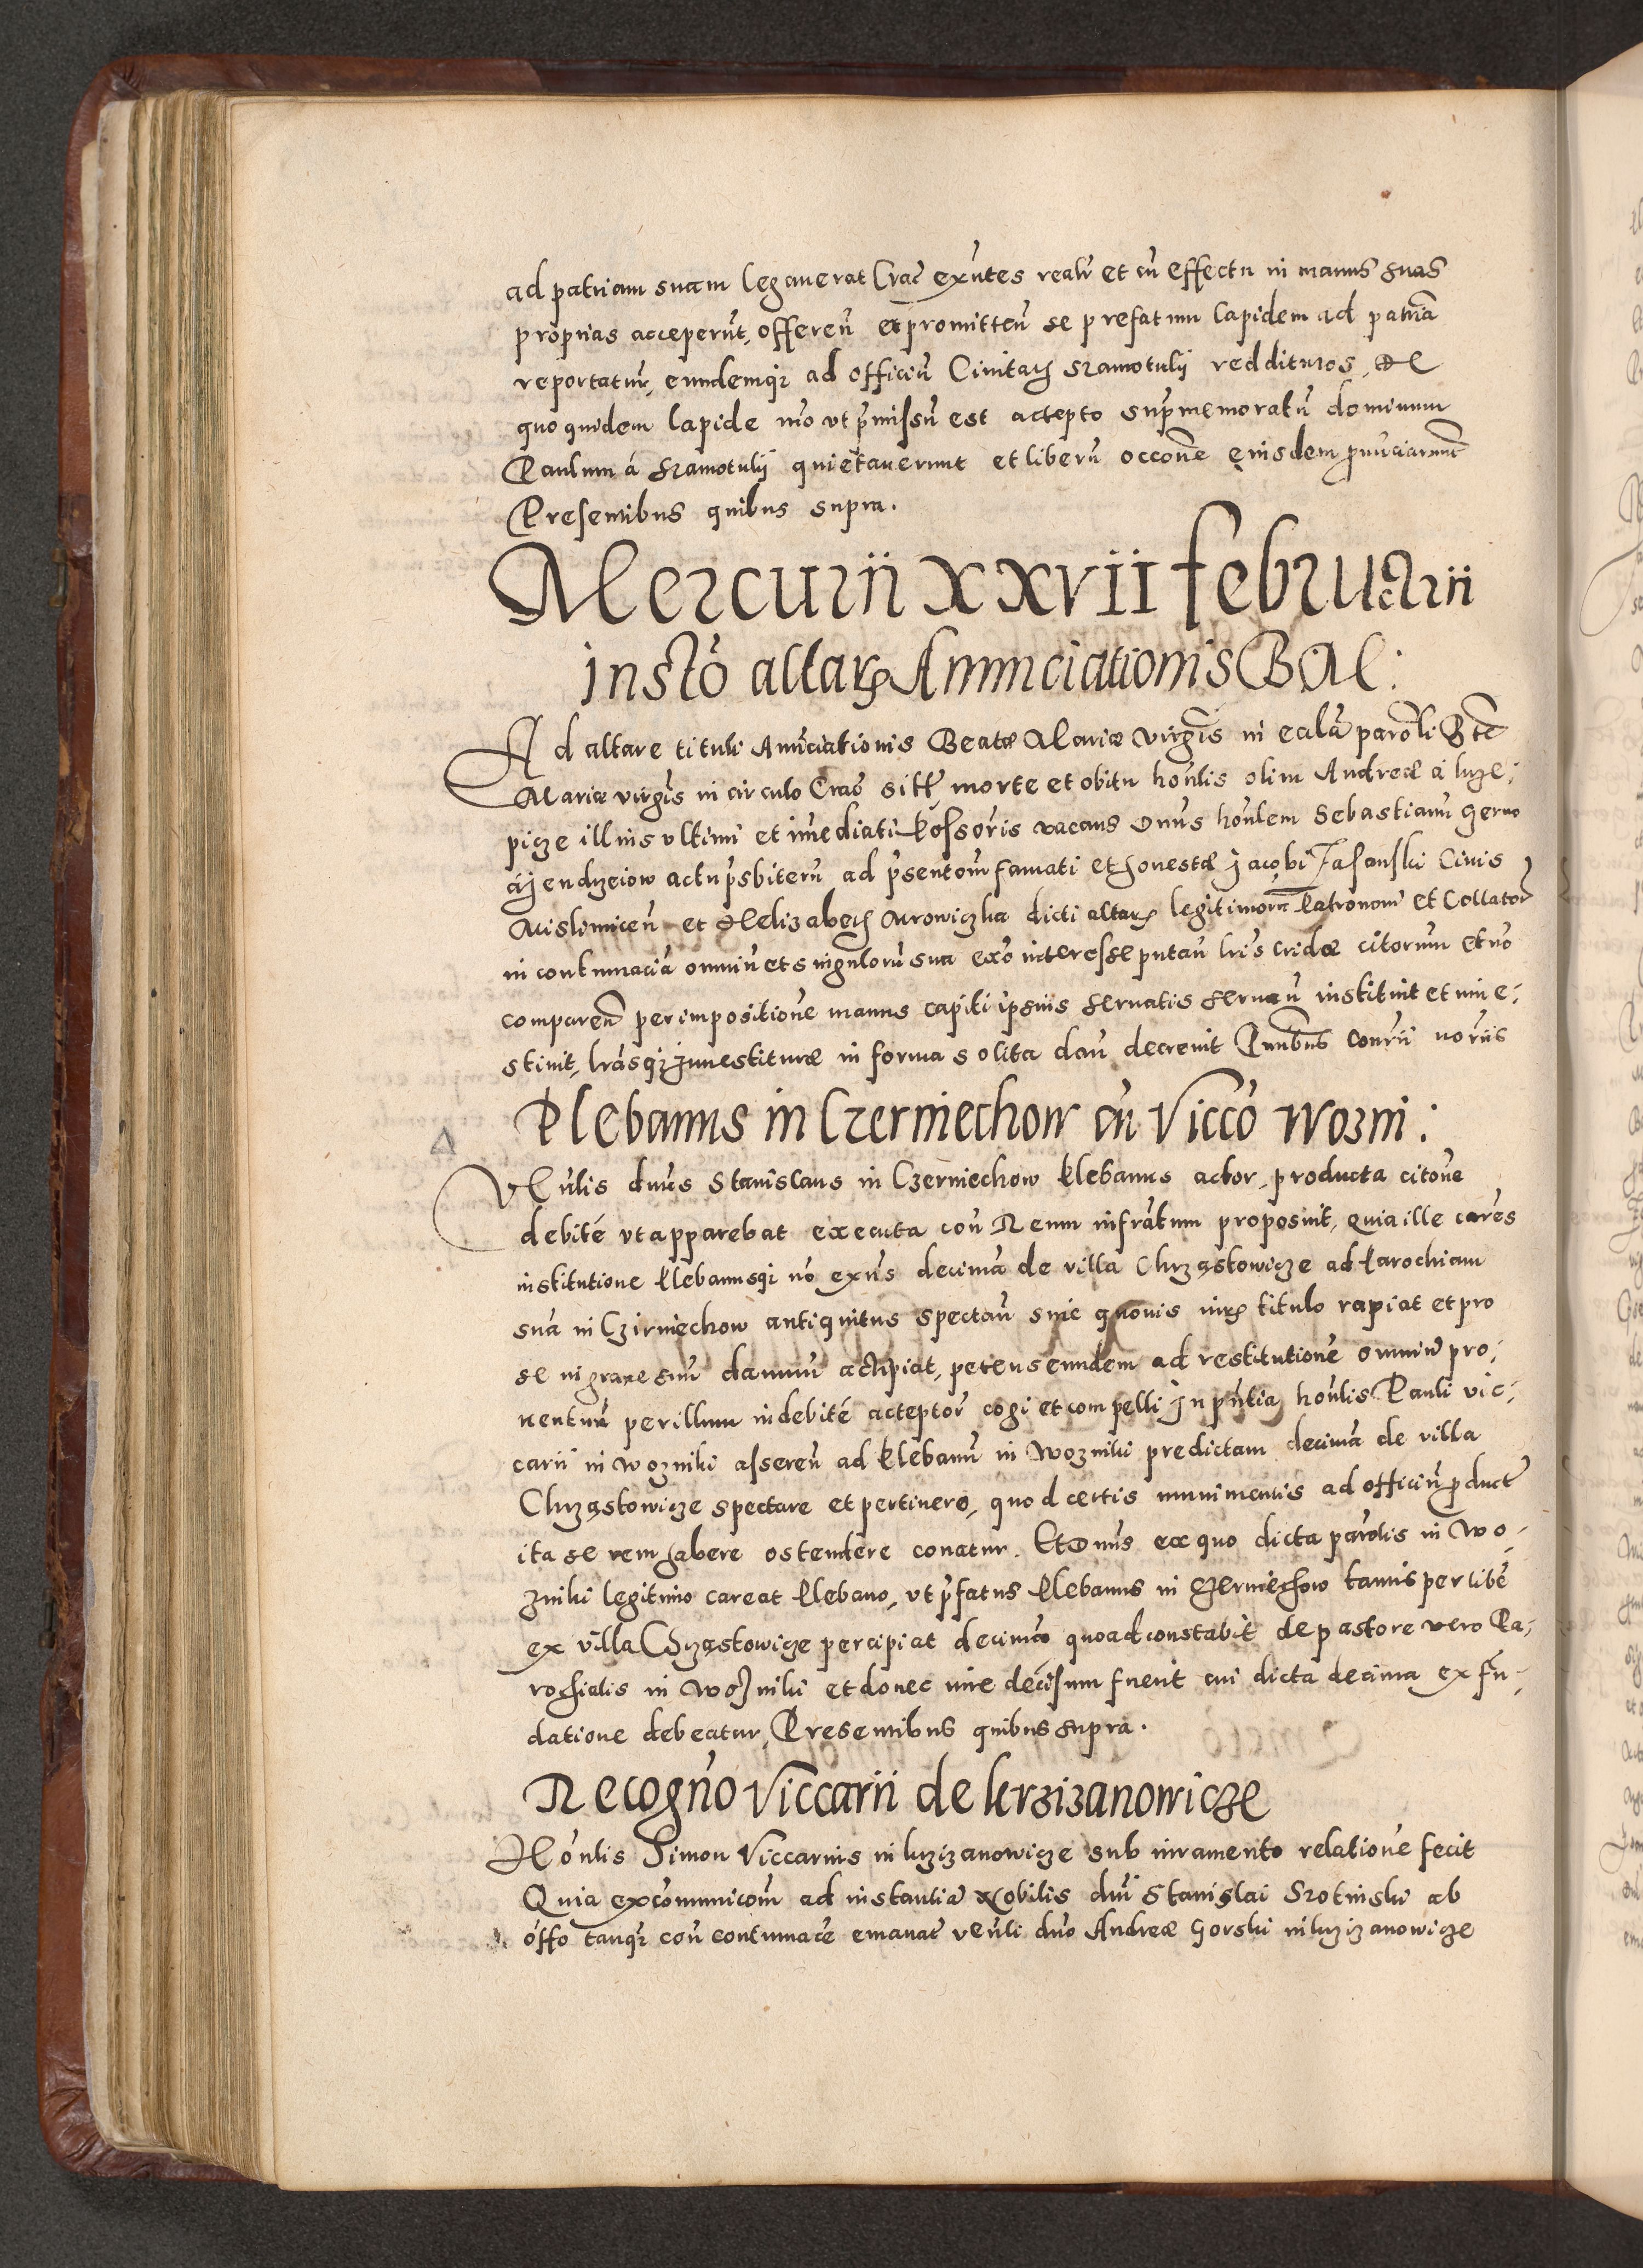 ad patriam suam legauerat Crac̃ exñtes realr̃ et cũ effectu in manus suas
proprias acceperũt, offereñ et promitteñ se prefatum lapidem ad patriã
reportatur̃, eundemqꝫ ad officiũ Ciuitatis Szamotulij reddituros, De
quo quidem lapide mõ vt p̃missũ est accepto sup̃memoratũ dominum
Paulum á Szamotulij quietauerunt et liberũ occc̃one eiusdem ꝓnũciarunt
Presentibus quibus supra.
Mercurii XXVII februarii
Insto̊ altaris Annunciationis B M:
Ad altare tituli Anũciationis Beatæ Mariæ virginis in ecclã parochli Btæ
Mariæ virgĩs in circulo Crac̃ sitũ morte et obitu honlis olim Andreæ á krze-
picze illius vltimi et im̃ediati possoris vacans Dñus honlem Sebastianũ zerno
á jendrzeiow actu p̃sbiterũ ad p̃sentom̃ famati et honestæ Jacobi Jasonski Ciuis
Wisliniceñ et Helizabeth Mrowiczka dicti altaris legitimorũ Patronorũ et Collator̃
in contumaciã omniũ et singulorũ sua exõ interesse putañ lris cridæ citorum et nõ
compareñ per impositionẽ manus capiti ipsius seruatis seruañ instituit et inue-
stiuit, lrasqꝫ Inuestituræ in forma solita dañ decreuit Pñtibus Consrii noriis
Plebanus in Czerniechow cũ Vicco Wozni:
Vẽnlis dñus Stanislaus in Czerniechow Plebanus actor, producta citone
debité vt apparebat executa con̄ Reum infrãtum proposuit, quia ille carẽs
institutione Plebanusqꝫ nõ exñs decimã de villa Chrząstowicze ad Parochiam
suã in Czirniechow antiquitus spectañ sine quouis iuris titulo rapiat et pro
se in graue suũ damnũ accipiat, petens eundem ad restitutionẽ omniũ pro-
uentuũ per illum indebité acceptor̃ cogi et compelli In pñtia honlis Pauli vic-
carii in Wozniki assereñ ad Plebanũ in Wozniki predictam decimã de villa
Chrząstowicze spectare et pertinere, quod certis munimentis ad officiũ ꝓduct̃
ita se rem habere ostendere conatur. Et Dñus ex quo dicta parolis in Wo-
zniki legitimo careat Plebano, vt p̃fatus Plebanus in Czerniechow tantisper libẽ
ex villa Chrząstowicze percipiat decimã quoad constabit de pastore vero Pa-
rochialis in Wozniki et donec iure decisum fuerit cui dicta decima ex fũ-
datione debeatur, Presentibus quibus supra.
Recogño Viccarii de krzizanowicze
Honlis Simon Viccarius in krzizanowicze sub iuramento relationẽ fecit
Quia excommunicom̃ ad instantiã Nobilis dñi Stanislai Srotinski ab
offo tanqꝫ con̄ contumacẽ emanat̃ veñli dño Andreæ Gorski in krzizanowicze